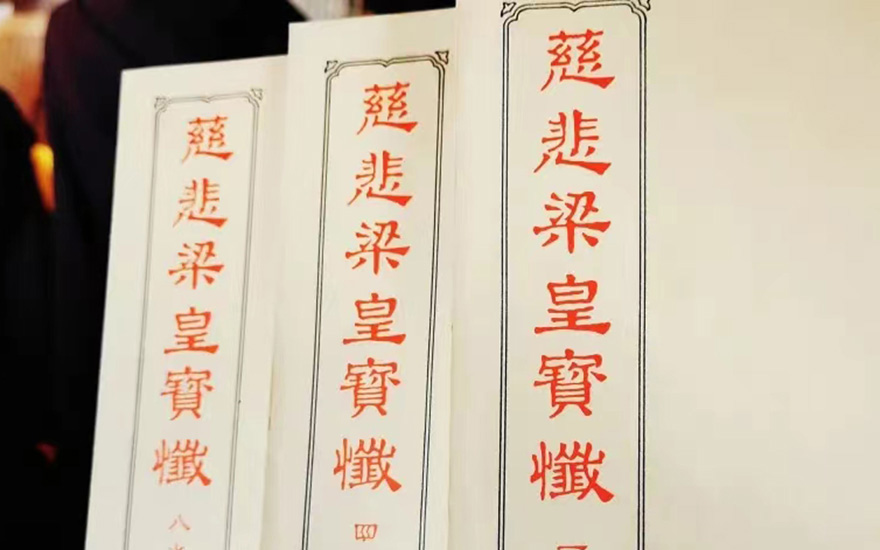 慈悲梁皇寶懺
慈悲梁皇寶懺四
慈悲梁皇寶懺八